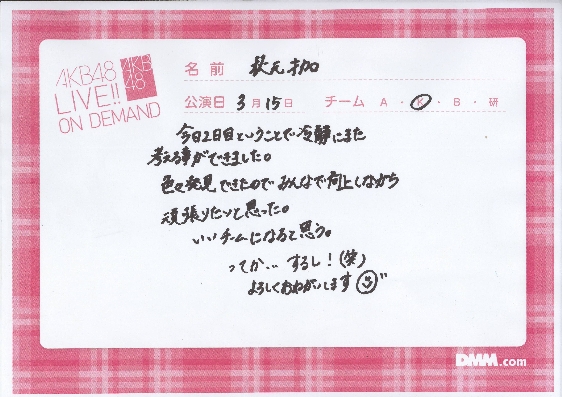 AKB48
LIVE!!
ON DEMAND
AKB
48
名前 秋元才加
公演日 3月15日 チーム A・K・B・研
今日2日目ということで冷静にまた
考える事ができました。
色々発見できたので みんなで向上しながら
頑張りたいと思った。
いいチームになると思う。
ってか… するし!(笑)
よろしくおねがいします
DMM.com